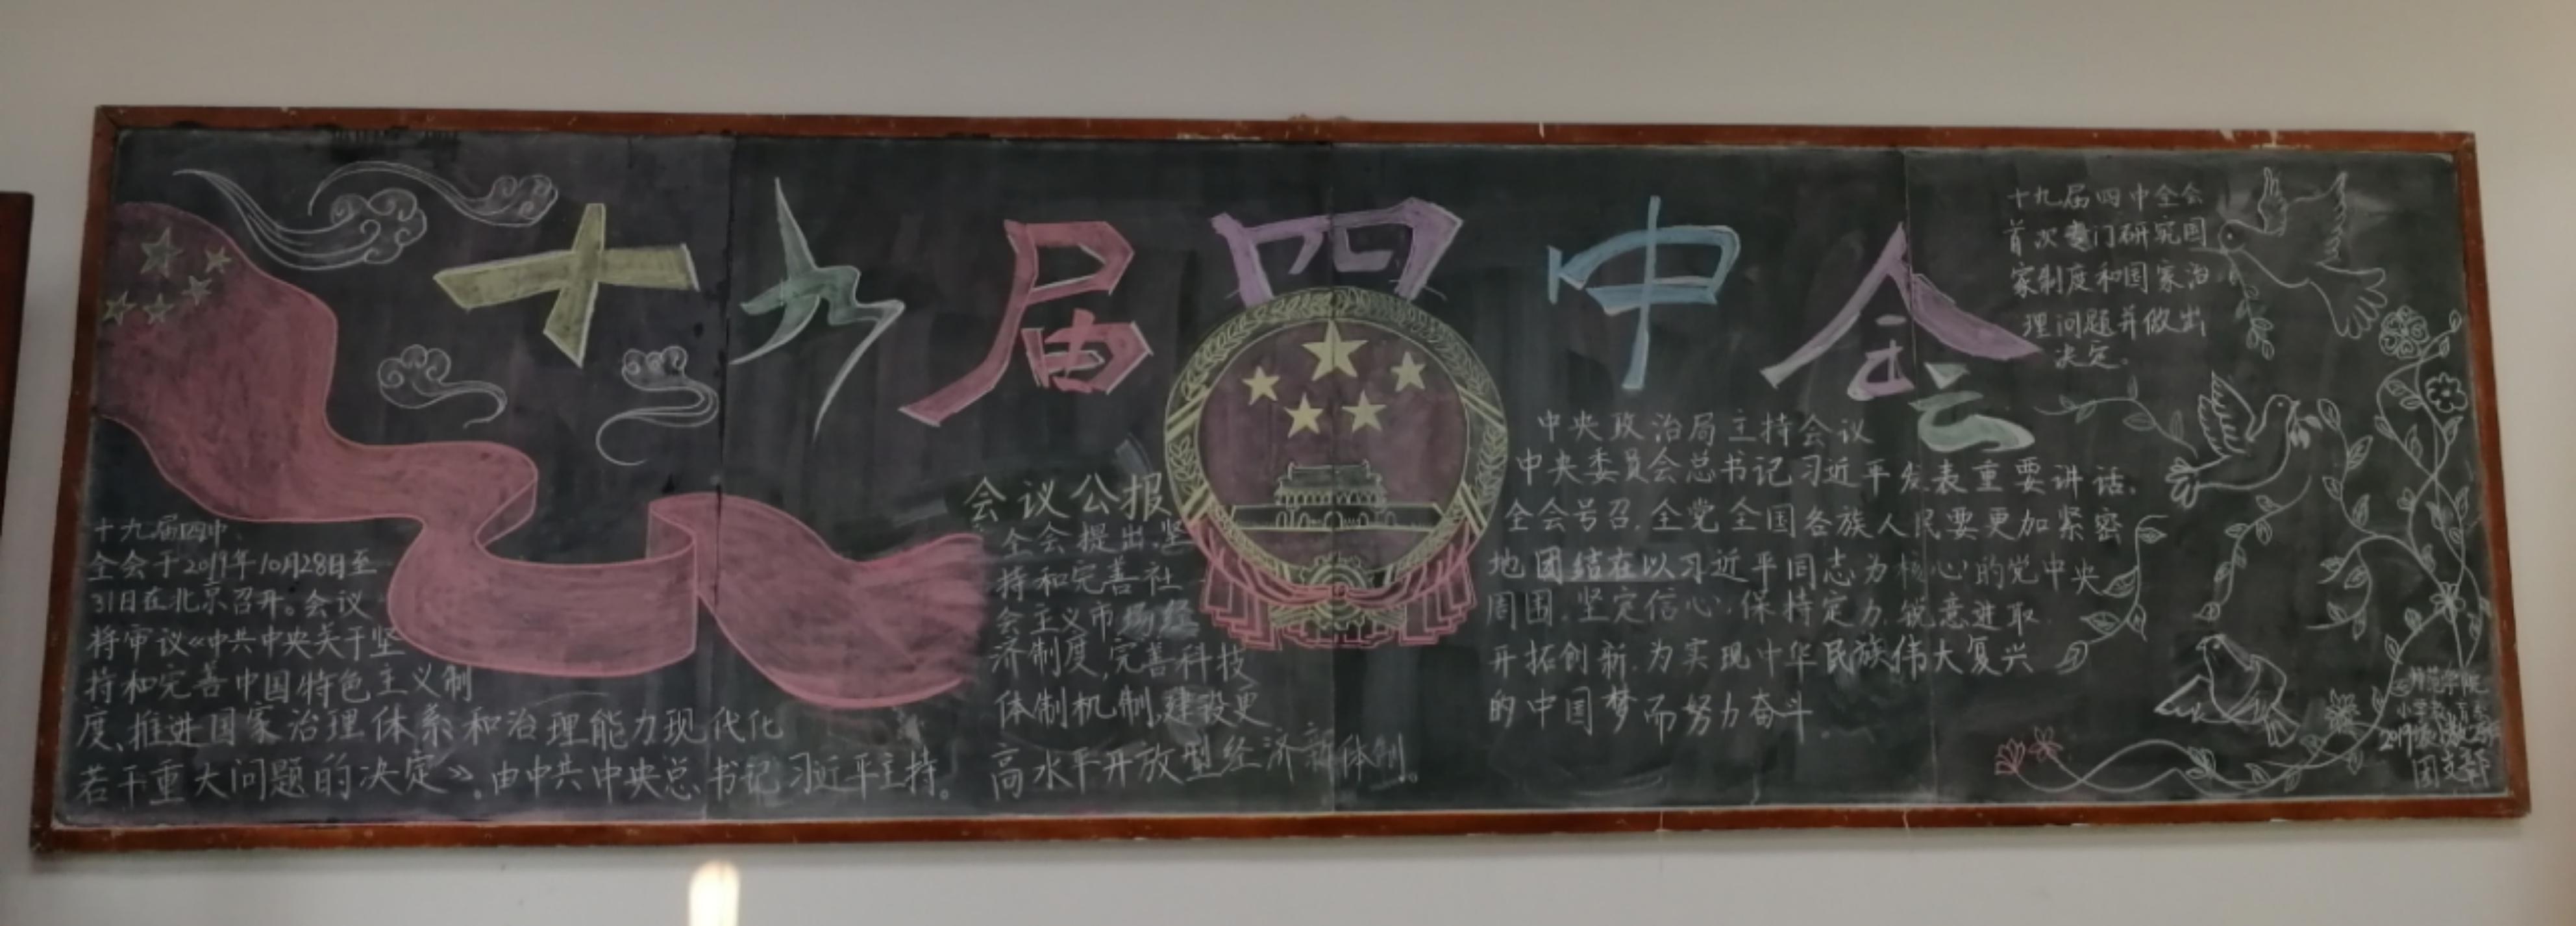 十九届四中全会
十九届四中
全会于2019年10月28日至
31日在北京召开。会议
将审议《中共中央关于坚
持和完善中国特色主义制
度、推进国家治理体系和治理能力现代化
若干重大问题的决定》。由中共中央总书记习近平主持。
会议公报
全会提出,坚
持和完善社
会主义市场经
济制度,完善科技
体制机制,建设更
高水平开放型经济新体制。
中央政治局主持会议
中央委员会总书记习近平发表重要讲话,
全会号召,全党全国各族人民要更加紧密
地团结在以习近平同志为核心的党中央
周围,坚定信心,保持定力,锐意进取,
开拓创新,为实现中华民族伟大复兴
的中国梦而努力奋斗。
十九届四中全会
首次专门研究国
家制度和国家治
理问题并做出
决定。
师范学院
团支部